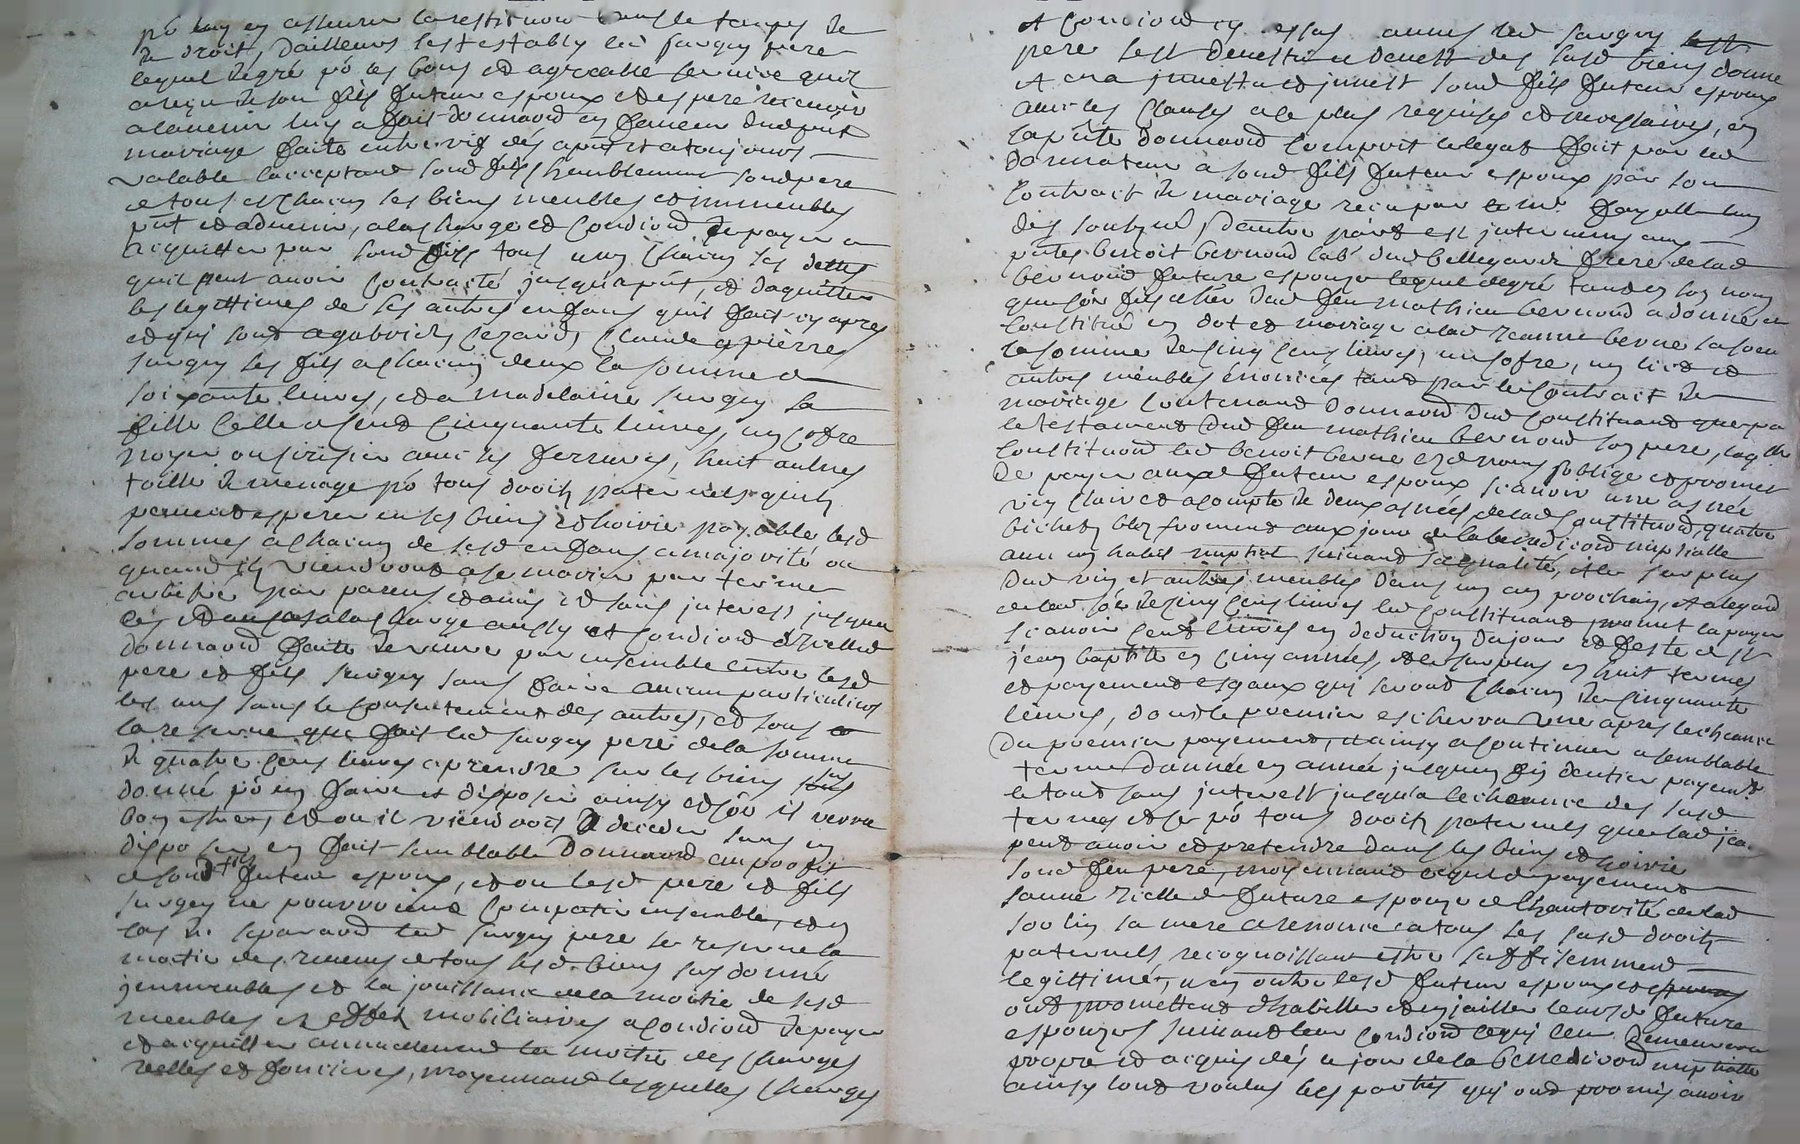 po luy en asseurer la restituon dans le temps de
de droit, dailleurs sest estably led surgey pere
lequel de gré po les bons et agreable service quil
a reçu de son fils futeur espoux et espere recevoir
a lavenir luy a fait donnaon en faveur dud pnt
mariage faite entre vifs dés apnt et a toujours
valable lacceptant sond fils humblement sond pere
de tous et chacun ses biens meubles et immeubles
pnt et advenir, a la charge et condiond de payer et
acquitter par sond fils tous uns chacun les dettes
quil peut avoir contracté jusqua pnt, et daquitter
les legittimes de ses autres enfans quil fait cy apres
et qui sont agobvich, Cezard, Claude & pierre
surgey ses fils a chacun deux la somme de
soixante livres, et a madelaine surgey sa
fille celle de cend cinquante livres, un cofre
noyer ou sirisier avec ses ferrures, huit aulnes
toille de menage po tous droits paternels quils
peuvent esperer en ses biens et hoirie payable lesd
sommes a chacun de sesd enfans a majorité ou
quand ils viendront a se marier par terme
arbitré par parens et amis et sans interest jusques
les et aussy a la charge aussy et condiond de lad
donnaond faite de vivre par ensemble entre lesd
pere et fils surgey sans faire aucun particuliers
les uns sans le consentement des autres, et sous
la reserve que fait led surgey pere de la somme
de quatre cens livres a prendre sur les biens sus
donné po en faire et disposer ainsy et sôn il verra
bon estre, et ou il viendroit a deceder sans en
disposer en fait semblable donnaond au proffit
de sond fils futeur espoux, et ou lesd pere et fils
surgey ne pourroient compatir ensemble, et en
cas de separaond led surgey pere se reserve la
moitie des revenus de tous lesd biens sus donné
immeubles et la jouissance de la moitie de sesd
meubles et effets mobiliaires a condiond de payer
et acquitter annuellement la moitie des charges
reelles et foncieres, moyennant lesquelles charges
et condiond cy essus aud led surgey
pere sest demettu et demett des susd biens donné
et en a investu et investt sond fils futeur espoux
avec les clauses a le plus requises et necessaires, en
la pnte donnaond comprit le legat fait par led
donnateur a sond fils futeur espoux par son
contrait de mariage reçu par me fayolle
des soubzné, Dautre part est intervenu aux
pntes benoit bernoud lab. dud bellegarde frere de lad
bernoud future espouze lequel de gré tand en son nom
que sôn fils aisné dud feu mathieu bernoud a donné et
constitué en dot et mariage a lad jeanne berne sa soeur
la somme de cinq cens livres, un cofre, un lict et
autres meubles énoncés tand par le contrait de
mariage contenand donnaond dud constituand que par
le testament dud feu mathieu bernoud son pere, laq. lle
constituond led benoit berne esd noms soblige et promet
de payer auxd futeurs espoux sçavoir une asnée
vin clair et a compte de deux asnées de lad constituond, quatre
bichets bled froment aux jour de la benediciond nuptialle
avec un habit nuptial suivand sa qualité, et le surplus
dud vin et autres meubles dans un an prochain, et a legard
de lad sôe de cinq cens livres led constituand promet la payer
sçavoir cend livres en deduction du jour et feste de st
jean baptiste en cinq années, et le surplus en huit termes
et payements esgaux qui seront chacun de cinquante
livres, dont le premier eschera une apres lecheance
du premier payement, et ainsy a continuer a semblable
terme dannée en année jusques fin dentier payemt
le tout sans interest jusqua lecheance des susd
termes et ce po tous droits paternels que lad jea.
peut avoir et pretendre dans les biens et hoirie
sond feu pere, moyennand lequel payement
jeanne ricelle future espouze de lhautorité de lad
soulin sa mere a renoncé a tous les susd droits
paternels, recognoissant estre suffisemment
legittimée, en outre lesd futeurs espoux et espouze
ont promettent d'habiller et enjailler leursd future
espouzes suivand leur condiond ce qui leur demeurera
propre et acquis dés le jour de la benediciond nuptialle
ainsy lont voulus les parties qui ont promis avoir